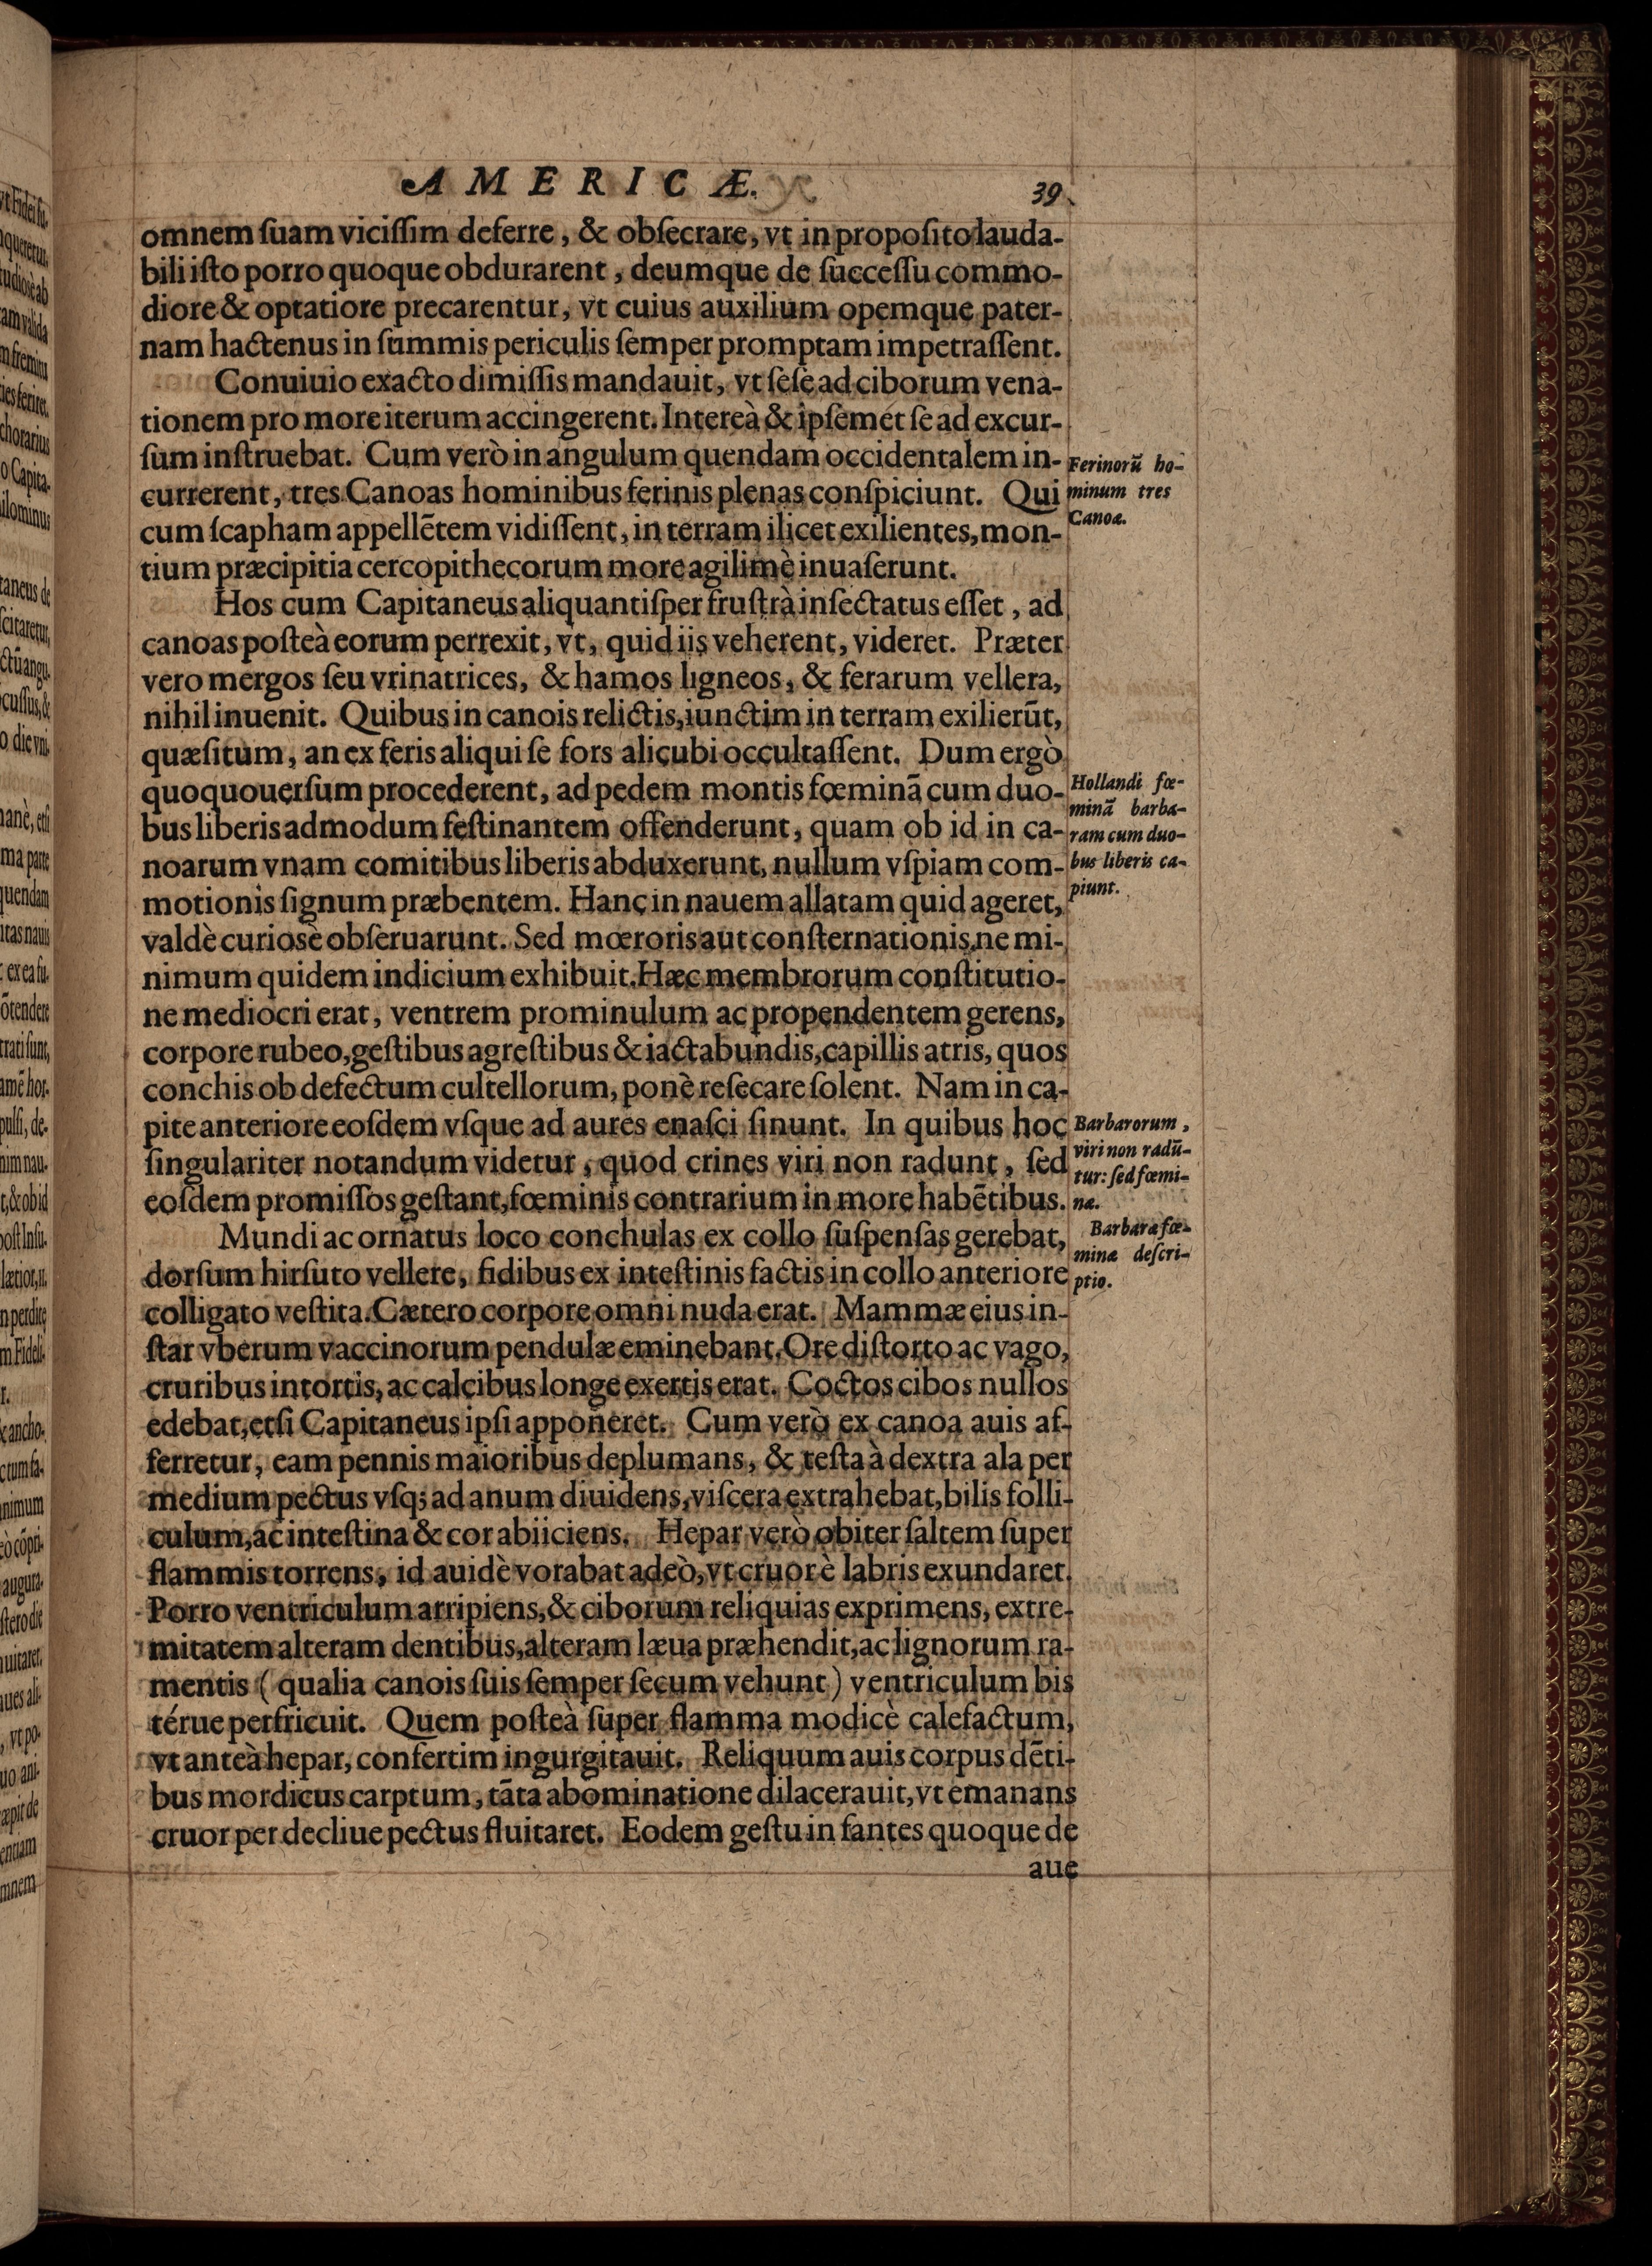 AMERICÆ.
39
omnem ſuam viciſſim deferre, & obſecrare, vt in propoſito lauda-
bili iſto porro quoque obdurarent, deumque de ſucceſſu commo-
diore & optatiore precarentur, vt cuius auxilium opemque pater-
nam hactenus in ſummis periculis ſemper promptam impetraſſent.
Conuiuio exacto dimiſſis mandauit, vt ſeſe ad ciborum vena-
tionem pro more iterum accingerent. Intereà & ipſemet ſe ad excur-
ſum inſtruebat. Cum verò in angulum quendam occidentalem in-
currerent, tres Canoas hominibus ferinis plenas conſpiciunt. Qui
cum ſcapham appellētem vidiſſent, in terram ilicet exilientes, mon-
tium præcipitia cercopithecorum more agilimè inuaſerunt.
Ferinorū ho-
minum tres
Canoæ.
Hos cum Capitaneus aliquantiſper fruſtrà inſectatus eſſet, ad
canoas poſteà eorum perrexit, vt, quid iis veherent, videret. Præter
vero mergos ſeu vrinatrices, & hamos ligneos, & ferarum vellera,
nihil inuenit. Quibus in canois relictis, iunctim in terram exilierūt,
quæſitum, an ex feris aliqui ſe fors alicubi occultaſſent. Dum ergò
quoquouerſum procederent, ad pedem montis fœminā cum duo-
bus liberis admodum feſtinantem offenderunt, quam ob id in ca-
noarum vnam comitibus liberis abduxerunt, nullum vſpiam com-
motionis ſignum præbentem. Hanc in nauem allatam quid ageret,
valdè curiosè obſeruarunt. Sed mœroris aut conſternationis ne mi-
nimum quidem indicium exhibuit. Hæc membrorum conſtitutio-
ne mediocri erat, ventrem prominulum ac propendentem gerens,
corpore rubeo, geſtibus agreſtibus & iactabundis, capillis atris, quos
conchis ob defectum cultellorum, ponè reſecare ſolent. Nam in ca-
pite anteriore eoſdem vſque ad aures enaſci ſinunt. In quibus hoc
ſingulariter notandum videtur, quod crines viri non radunt, ſed
eoſdem promiſſos geſtant, fœminis contrarium in more habētibus.
Hollandi fœ-
minā barba-
ram cum duo-
bus liberis ca-
piunt.
Barbarorum,
viri non radū-
tur: ſed fœmi-
næ.
Mundi ac ornatus loco conchulas ex collo ſuſpenſas gerebat,
dorſum hirſuto vellere, fidibus ex inteſtinis factis in collo anteriore
colligato veſtita. Cætero corpore omni nuda erat. Mammæ eius in-
ſtar vberum vaccinorum pendulæ eminebant. Ore diſtorto ac vago,
cruribus intortis, ac calcibus longe exertis erat. Coctos cibos nullos
edebat, etſi Capitaneus ipſi apponeret. Cum verò ex canoa auis af-
ferretur, eam pennis maioribus deplumans, & teſta à dextra ala per
medium pectus vſq; ad anum diuidens, viſcera extrahebat, bilis folli-
culum, ac inteſtina & cor abiiciens. Hepar verò obiter ſaltem ſuper
flammis torrens, id auidè vorabat adeò, vt cruor è labris exundaret.
Porro ventriculum arripiens, & ciborum reliquias exprimens, extre-
mitatem alteram dentibus, alteram læua præhendit, ac lignorum ra-
mentis (qualia canois ſuis ſemper ſecum vehunt) ventriculum bis
térue perfricuit. Quem poſteà ſuper flamma modicè calefactum,
vt anteà hepar, confertim ingurgitauit. Reliquum auis corpus dēti-
bus mordicus carptum, tāta abominatione dilacerauit, vt emanans
cruor per decliue pectus fluitaret. Eodem geſtu in fantes quoque de
aue
Barbaræ fœ-
minæ deſcri-
ptio.